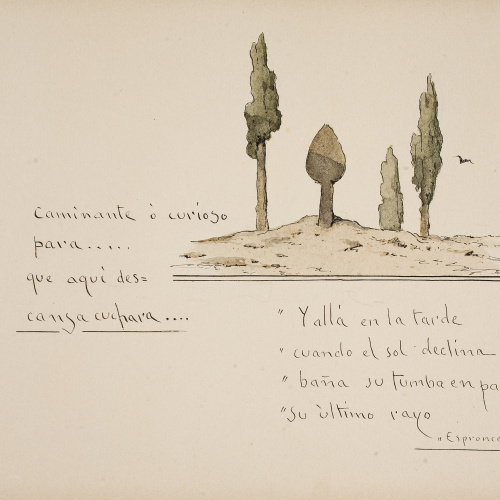 caminante ò curioso
para.....
que aquí des=
cansa cuchara....
" Y allá en la tarde
" cuando el sol declina
" baña su tumba en
" su ùltimo rayo